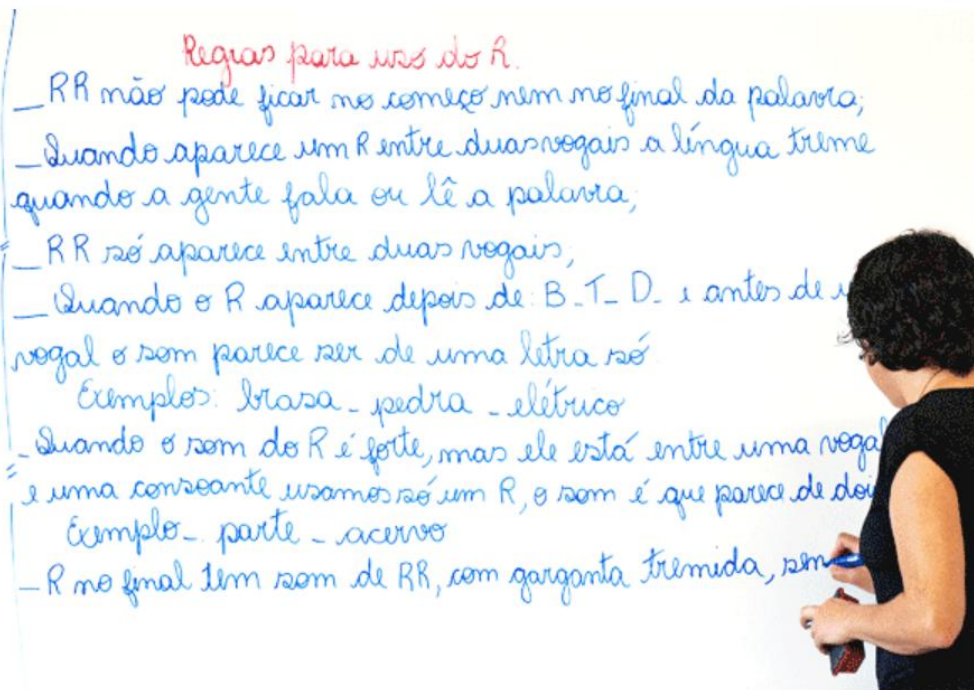 Regras para uso do R.
_ RR não pode ficar no começo nem no final da palavra;
_ Quando aparece um R entre duas vogais a língua treme
quando a gente fala ou lê a palavra;
_ RR só aparece entre duas vogais;
_ Quando o R aparece depois de: B_T_D_ e antes de
vogal o som parece ser de uma letra só
Exemplos: brasa _ pedra _ elétrico
_ Quando o som do R é forte, mas ele está entre uma vogal
e uma consoante usamos só um R, o som é que parece de doi
Exemplo_ parte _ acervo
_ R no final tem som de RR, com garganta tremida, sem